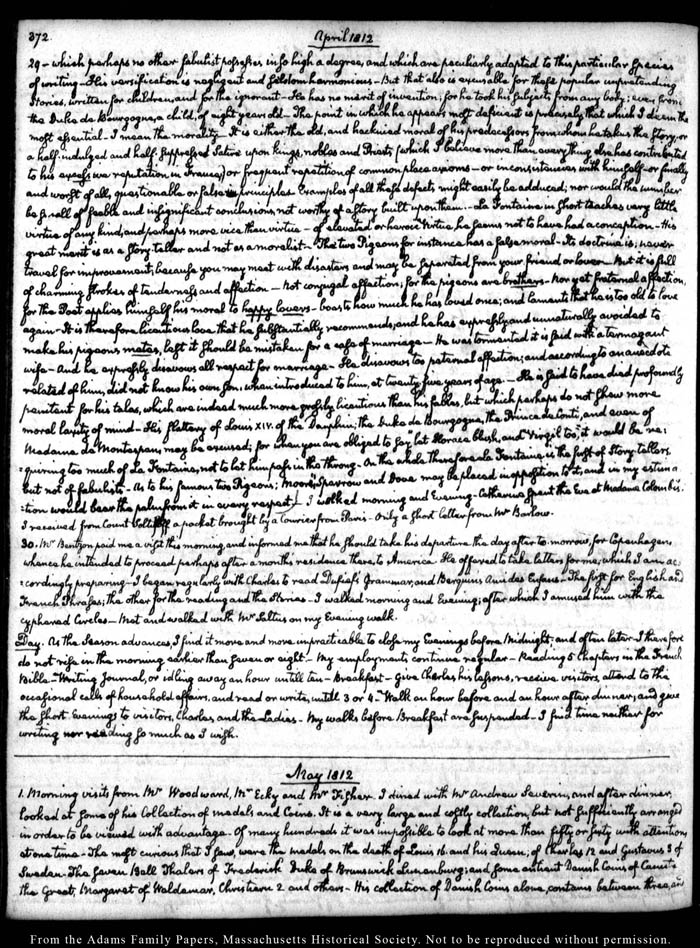 372.
April 1812
29 - which perhaps no other fabulist possesses in so high a degree, and which are peculiarly adapted to this particular species
of writing - His versification is negligent and seldom harmonious - But that also is excusable for these popular unpretending
stories, written for children, and for the ignorant - He has no merit of invention; for he took his subjects from any body; even from
the Duke de Bourgogne, a child, of eight years old - The point in which he appears most deficient is precisely that which I deem the
most essential - I mean the morality - It is either the old, and hacknied moral of his predecessors from whom he takes the story, or
a half-indulged and half suppressed Satire upon kings, nobles and Priests (which I believe more than every thing else has contributed
to his excessive reputation in France,) or frequent repetition of common place axioms - or inconsistencies with himself - or finally
and worst of all, questionable or false principles. Examples of all these defects might easily be adduced; nor would the number
be small of feeble and insignificant conclusions, not worthy of a story built upon them - La Fontaine in short teaches very little
virtue of any kind, and perhaps more vice than virtue - of elevated or heroic virtue he seems not to have had a conception - His
great merit is as a story teller and not as a moralist - The two Pigeons for instance has a false moral - Its doctrine is; never
travel for improvement, because you may meet with disasters and may be separated from your friend or lover - But it is full
of charming strokes of tenderness and affection - Not conjugal affection; for the pigeons are brothers - Nor yet fraternal affection,
for the Poet applies himself his moral to happy lovers - boasts how much he has loved once; and laments that he is too old to love
again - It is therefore licentious love that he substantially recommends, and he has expressly and unnaturally avoided to
make his pigeons mates, lest it should be mistaken for a case of marriage - He was tormented it is said with a termagant
wife - And he expressly disavows all respect for marriage - He disavows too paternal affection; and according to an anecdote
related of him, did not know his own son, when introduced to him, at twenty five years of age - He is said to have died profoundly
penitent for his tales, which are indeed much more grossly licentious than his fables, but which perhaps do not shew more
moral laxity of mind - His flattery of Louis XIV. of the Dauphin; the Duke de Bourgogne, the Prince de Conti, and even of
Madame de Montespan, may be excused; for when you are obliged to say "let Horace blush, and Virgil too," it would be re:
:quiring too much of La Fontaine, not to let him pass in the throng - On the whole therefore La Fontaine is the first of Story tellers,
but not of fabulists - As to his famous two Pigeons; Moore's Sparrow and Dove may be placed in opposition to it, and in my estima:
:tion would bear the palm from it in every respect. I walked morning and Evening - Catherine spent the Eve at Madame Colombi's.
I received from Count a packet brought by a Courier from Paris - Only a short letter from Mr Barlow.
30. Mr Bentzon paid me a visit this morning, and informed me that he should take his departure the day after to-morrow, for Copenhagen,
whence he intended to proceed perhaps after a months residence there, to America. He offered to take letters for me, which I am ac:
:cordingly preparing - I began regularly with Charles to read Grammar, and Berquin's Ami des Enfans - The first for English and
French Phrases; the other for the reading and the Stories - I walked morning and Evening; after which I amused him with the
cyphered Circles - Met and walked with Mr Saltus on my Evening walk.
Day. As the season advances, I find it more and more impracticable to close my Evenings before Midnight; and often later - I therefore
do not rise in the morning earlier than seven or eight - My employments continue regular - Reading 5 Chapters in the French
Bible - Writing Journal, or idling away an hour untill ten - Breakfast - Give Charles his lessons, receive visitors, attend to the
occasional calls of household affairs, and read or write, untill 3 or 4 - Walk an hour before and an hour after dinner, and give
the short Evenings to visitors, Charles, and the Ladies - My walks before Breakfast are suspended - I find time neither for
writing nor reading so much as I wish.
May 1812
1. Morning visits from Mr Woodward, Mr Ecky and Mr Fisher. I dined with Mr Andrew Severin, and after dinner
looked at some of his Collection of medals and Coins. It is a very large and costly collection, but not sufficiently arranged
in order to be viewed with advantage - Of many hundreds it was impossible to look at more than fifty or sixty with attention
at one time - The most curious that I saw, were the medals on the death of Louis 16. and his Queen; of Charles 12 and Gustavus 3 of
Sweden - The seven Bell Thalers of Frederick Duke of Brunswick Lunenburg; and some antient Danish Coins of Canute
the Great, Margaret of Waldemar, Christiern 2 and others - His collection of Danish Coins alone, contains between three, and
From the Adams Family Papers, Massachusetts Historical Society. Not to be reproduced without permission.